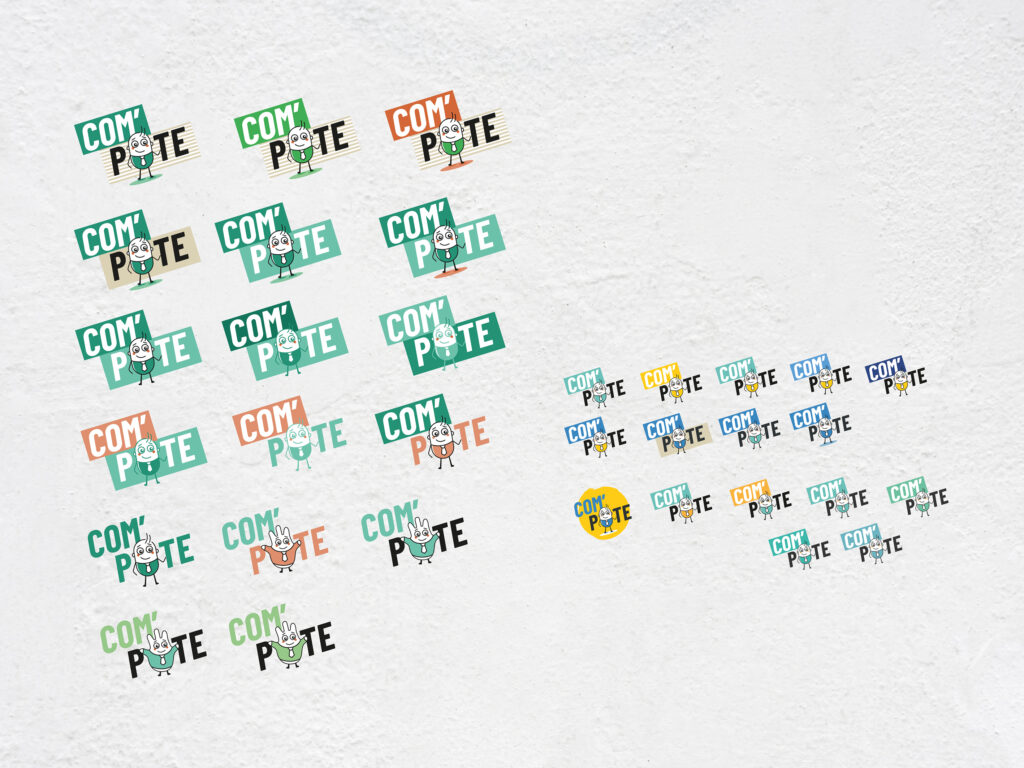 COM'
POTE
COM'
POTE
COM'
POTE
COM'
POTE
COM'
POTE
COM'
POTE
COM'
POTE
COM'
POTE
COM'
POTE
COM'
POTE
COM'
POTE
COM'
POTE
COM'
POTE
COM'
POTE
COM'
POTE
COM'
POTE
COM'
POTE
COM'
POTE
COM'
POTE
COM'
POTE
COM'
POTE
COM'
POTE
COM'
POTE
COM'
POTE
COM'
POTE
COM'
POTE
COM'
POTE
COM'
POTE
COM'
POTE
COM'
POTE
COM'
POTE
COM'
POTE
COM'
POTE